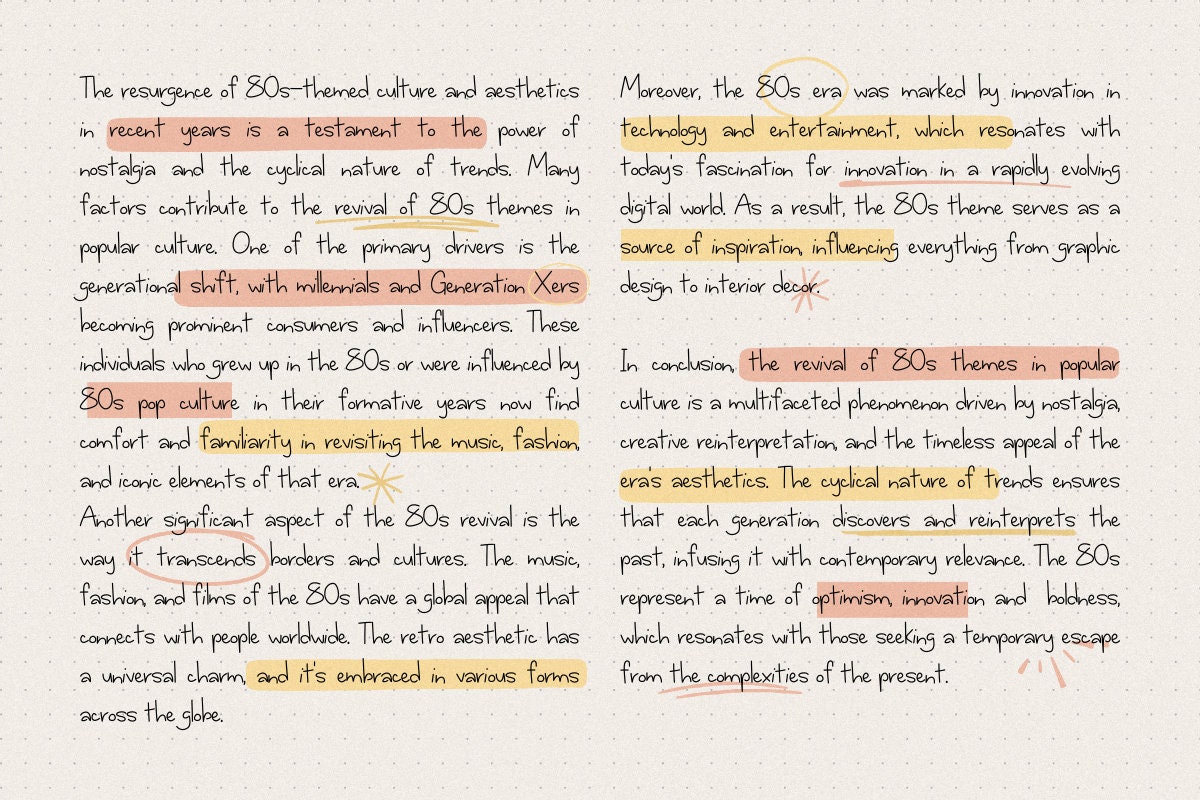 The resurgence of 80s-themed culture and aesthetics
in recent years is a testament to the power of
nostalgia and the cyclical nature of trends. Many
factors contribute to the revival of 80s themes in
popular culture. One of the primary drivers is the
generational shift, with millennials and Generation Xers
becoming prominent consumers and influencers. These
individuals who grew up in the 80s or were influenced by
80s pop culture in their formative years now find
comfort and familiarity in revisiting the music, fashion,
and iconic elements of that era.
Another significant aspect of the 80s revival is the
way it transcends borders and cultures. The music,
fashion, and films of the 80s have a global appeal that
connects with people worldwide. The retro aesthetic has
a universal charm, and it's embraced in various forms
across the globe.
Moreover, the 80s era was marked by innovation in
technology and entertainment, which resonates with
today's fascination for innovation in a rapidly evolving
digital world. As a result, the 80s theme serves as a
source of inspiration, influencing everything from graphic
design to interior decor.
In conclusion, the revival of 80s themes in popular
culture is a multifaceted phenomenon driven by nostalgia,
creative reinterpretation, and the timeless appeal of the
era's aesthetics. The cyclical nature of trends ensures
that each generation discovers and reinterprets the
past, infusing it with contemporary relevance. The 80s
represent a time of optimism, innovation and boldness,
which resonates with those seeking a temporary escape
from the complexities of the present.